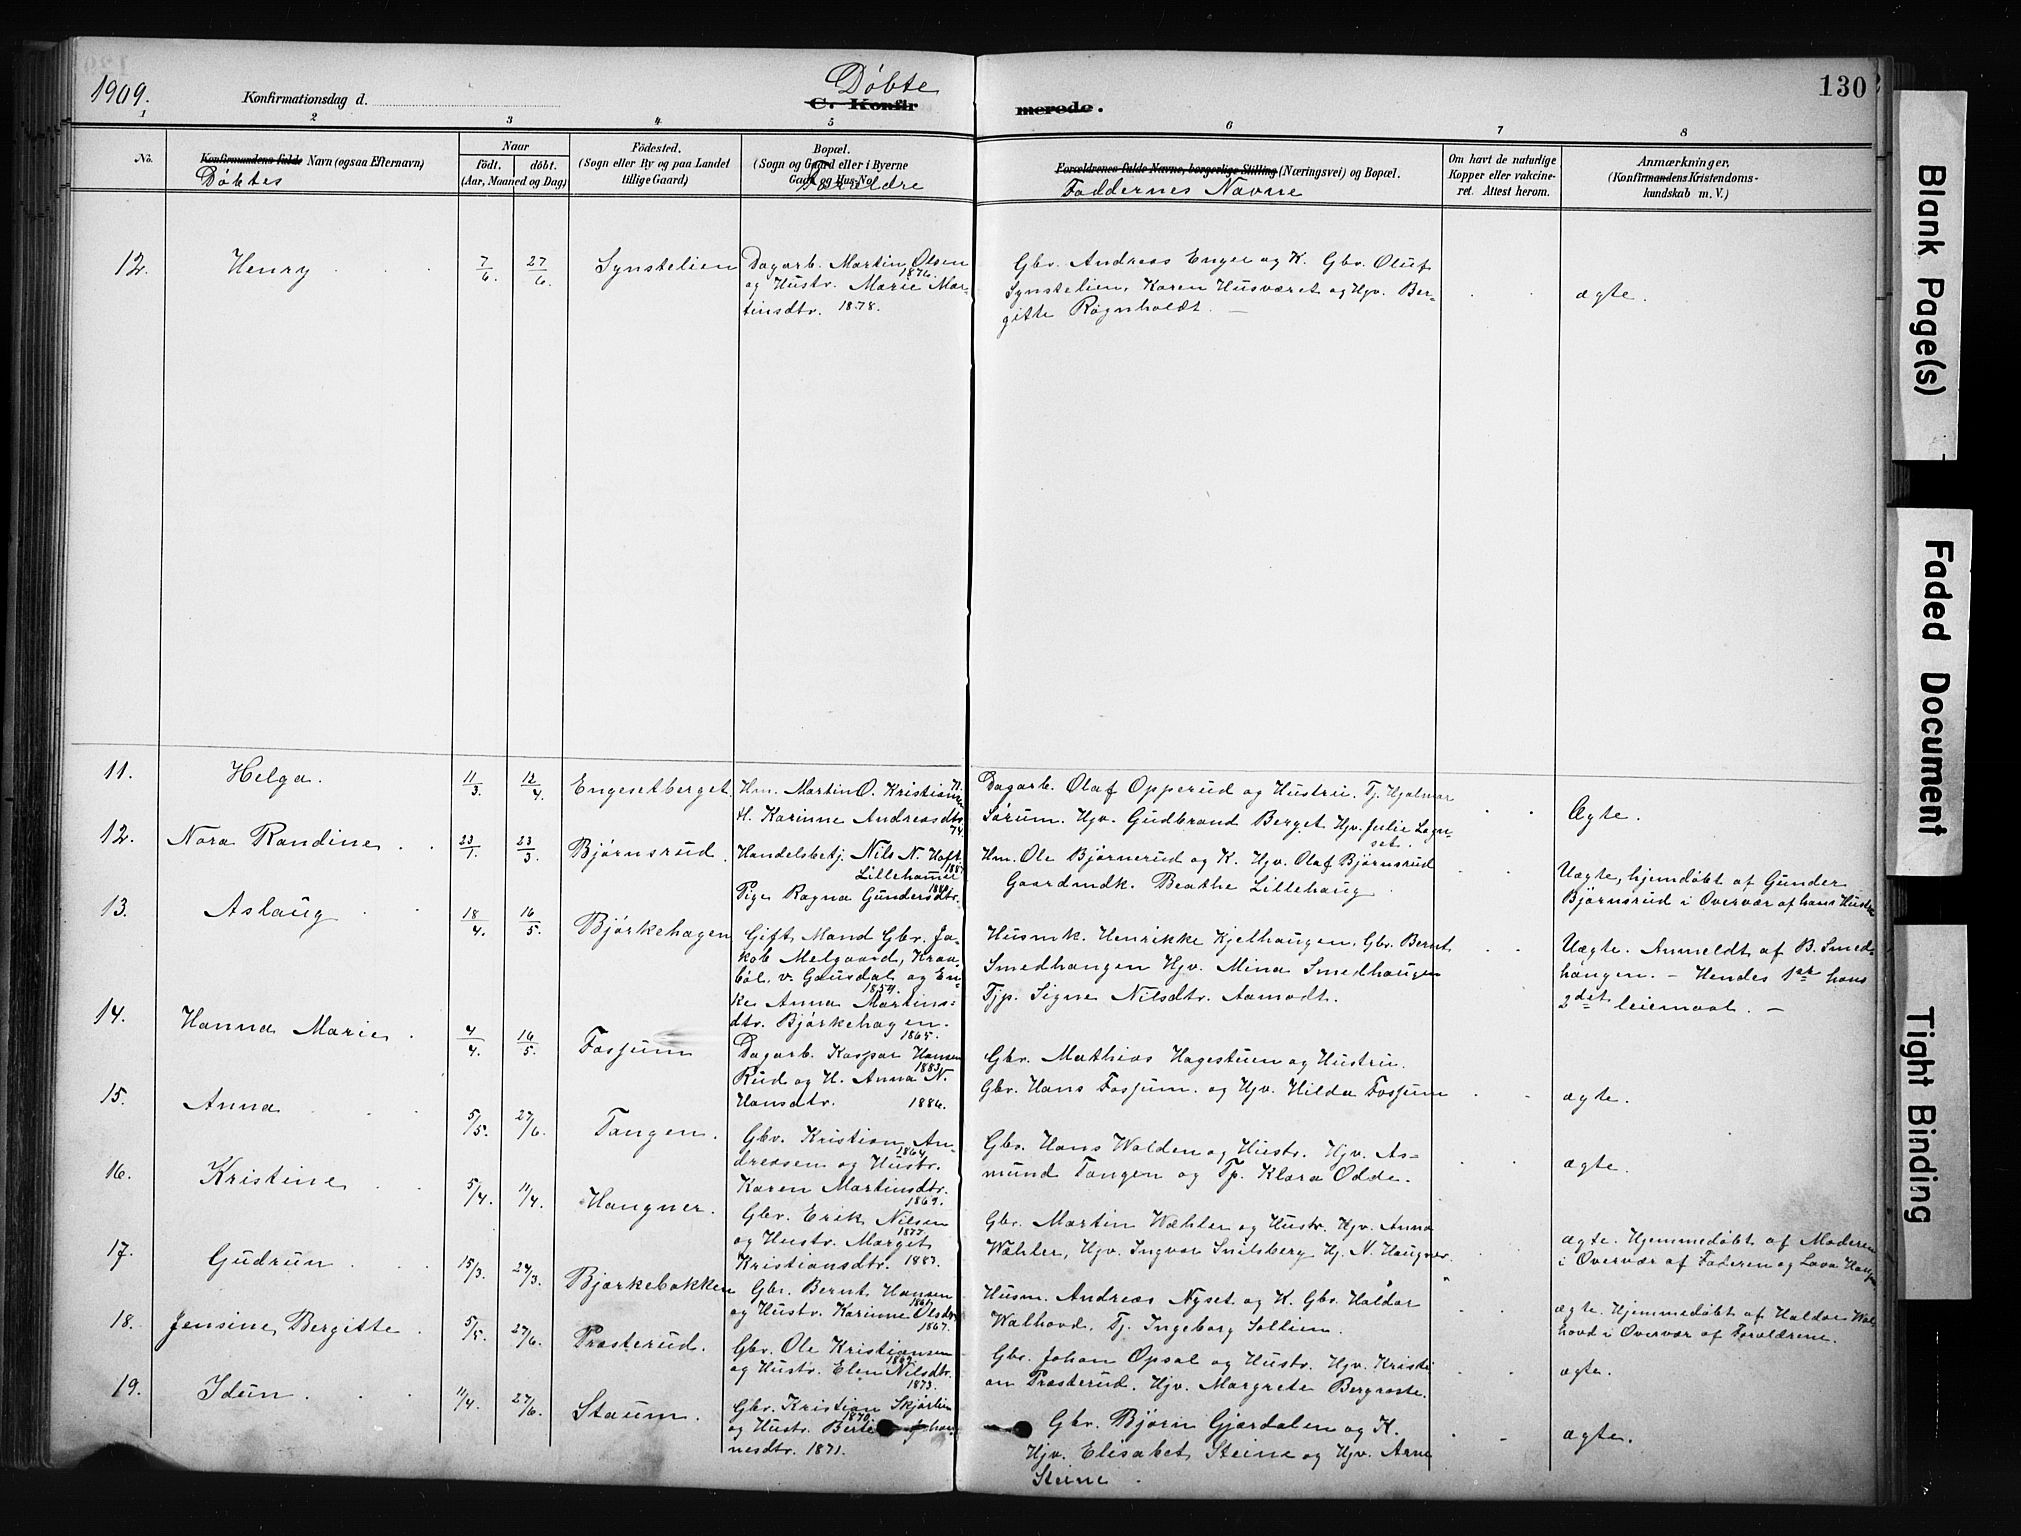 1909.
Konfirmationsdag d.
Døbte
C. Konfir
merede.
130
1 2 3 4 5 6 7 8
No.
Konfirmandens fulde Navn (ogsaa Efternavn)
Døbtes
Naar
født. døbt.
(Aar, Maaned og Dag)
Fødested.
(Sogn eller By og paa Landet
tillige Gaard)
Bopæl.
(Sogn og Gaard eller i Byerne
Gade og Hus-No.)
Forældre
Forældrenes fulde Navne, borgerlige Stilling (Næringsvei) og Bopæl.
Faddernes Navne
Om havt de naturlige
Kopper eller vakcine-
ret. Attest herom.
Anmærkninger.
(Konfirmandens Kristendoms-
kundskab m. V.)
12. Henry 7/6. 27/6. Synstelien
Dagarb. Martin Olsen
1876.
og Hustr. Marie Mar-
tinsdtr. 1878.
Gbr. Andreas Enger og K. Gbr. Oluf
Synstelien, Karen Husværet og Hjv. Ber-
gitte Rognholdt.
ægte.
11. Helga. 11/3. 12/4. Engesetberget.
Hm. Martin O. Kristiansen
H. Karinne Andreasdtr.
74.
Dagarb. Olaf Opperud og Hustru. Tj. Hjalmar
Sørum. Hjv. Gudbrand Berget Hjv. Julie Logn-
set.
Ægte.
12. Nora Randine 23/1. 23/3. Bjørnsrud.
Handelsbetj. Nils N. Hoft
Lillehamer
Pige Ragna Gundersdtr.
Hm. Ole Bjørnerud og K. Hjv. Olaf Bjørnsrud
Gaardmdk. Beathe Lillehaug
Uægte, hjemdøbt af Gunder
Bjørnsrud i Overvær af hans Hustru
13. Aslaug 18/4. 16/5. Bjørkehagen
Gift Mand Gbr. Ja-
kob Melgaard, Kraa-
bøl. v. Gausdal og En-
1859.
ke Anna Martins-
dtr. Bjørkehagen.
1865.
Husmk. Henrikke Kjelhaugen, Gbr. Bernt
Smedhaugen Hjv. Mina Smedhaugen
Tjp. Signe Nilsdtr. Aamodt.
Uægte. Anmeldt af B. Smed-
haugen. - Hendes 1ste hans
2det leiemaal. -
14. Hanna Marie. 4/4. 16/5. Fossum
Dagarb. Kaspar Hansen
1883.
Rud og H. Anna N.
Hansdtr. 1886.
Gbr. Mathias Hagestuen og Hustru.
Gbr. Hans Fossum. og Hjv. Hilda Fossum
ægte.
15. Anna 5/5. 27/6. Tangen.
Gbr. Kristian An-
1864.
dreasen og Hustr.
Karen Martinsdtr.
1869.
Gbr. Hans Walden og Hustr. Hjv. As-
mund Tangen og Tp. Klara Odde.
ægte.
16. Kristine 5/4. 11/4. Haugner.
Gbr. Erik Nilsen
1877.
og Hustr. Marget
Kristiansdtr. 1887.
Gbr. Martin Wæhler og Hustr. Hjv. Anna
Wæhler, Hjv. Ingvar Snilsberg Hj. N. Haugner.
ægte. Hjemmedøbt af Moderen
i Overvær af Faderen og Lava
17. Gudrun 15/3. 24/3. Bjørkebakken
Gbr. Bernt Hansen
1867.
og Hustr. Karinne Olsdtr.
1867.
Husm. Andreas Nyset og K. Gbr. Haldor
Walhovd. Tj. Ingeborg Sollien.
ægte. Hjemmedøbt af Haldor Wal-
hovd i Overvær af Forældrene.
18. Jensine Bergitte. 5/5. 27/6. Præsterud.
Gbr. Ole Kristiansen
og Hustr. Elen Nilsdtr.
1873.
Gbr. Johan Opsal og Hustr. Hjv. Kristi
an Præsterud. Hjv. Margrete Bergroste.
ægte.
19. Idun 11/4. 27/6. Staum.
Gbr. Kristian Skjørlien
1870.
og Hustr. Berte Johan
nesdtr. 1871.
Gbr. Bjørn Gjærdalen og K.
Hjv. Elisabet Steine og Hjv. Arne
Steine.
ægte.
Blank Page(s)
Faded Document
Tight Binding